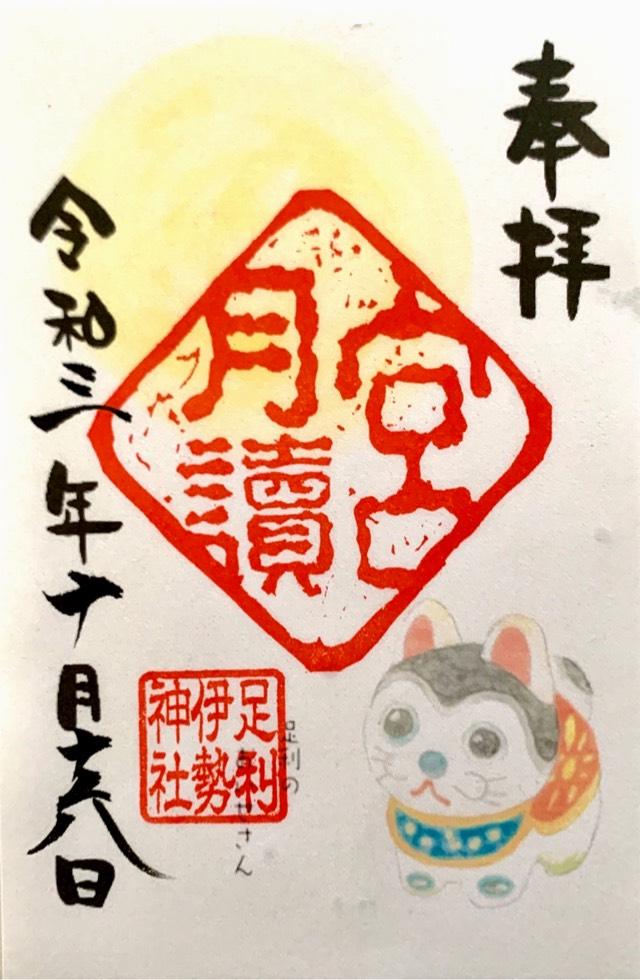 奉拝
月讀
宮
令和三年十月八日
足利
伊勢
神社
足利の
せさん